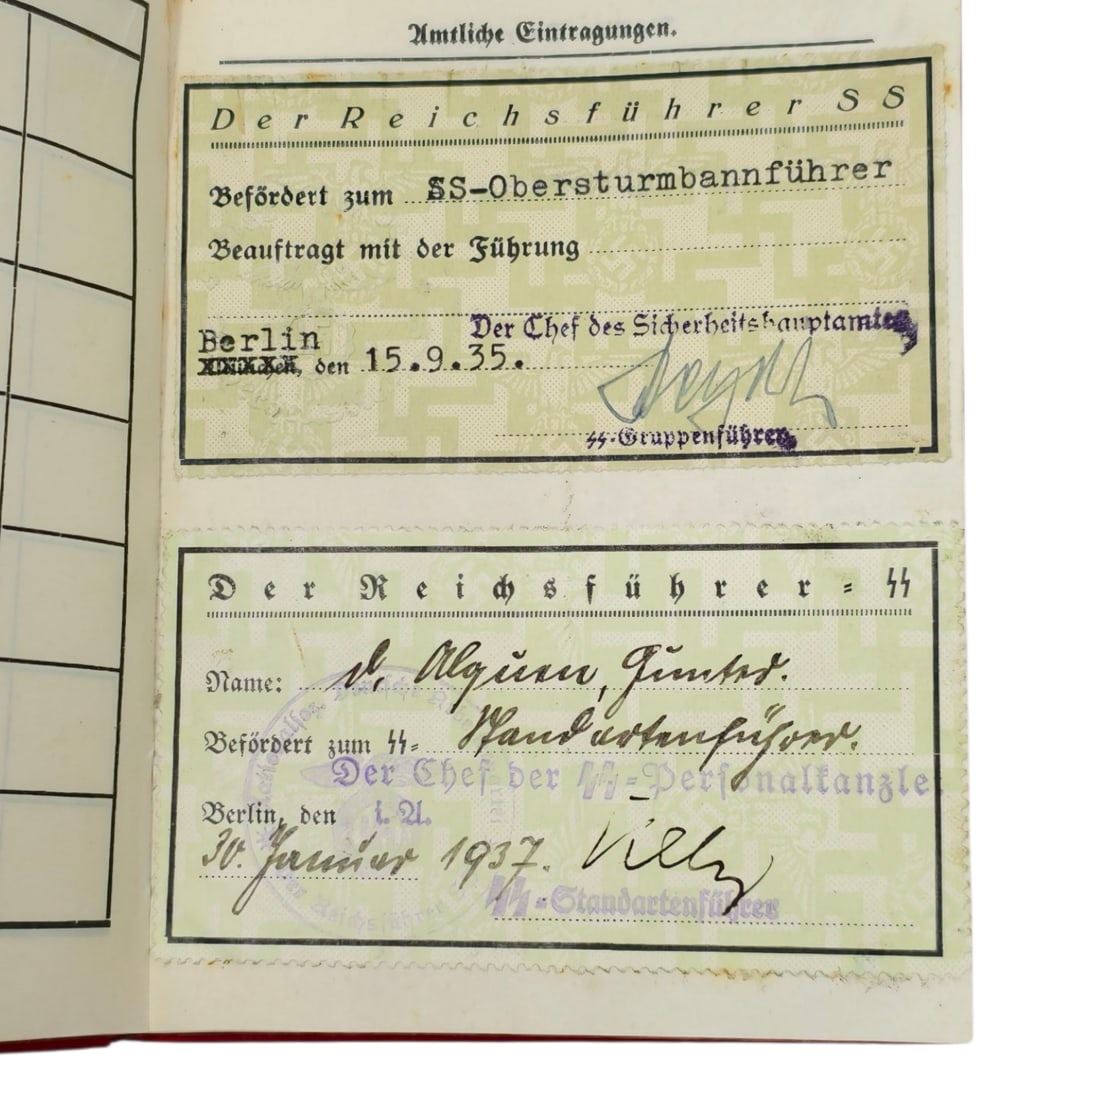 Amtliche Eintragungen.
Der Reichsführer SS
Befördert zum SS-Obersturmbannführer
Beauftragt mit der Führung
Der Chef des Sicherheitshauptamtes
Berlin
München, den 15.9.35.
SS-Gruppenführer
Der Reichsführer-SS
Name: d. Alquen, Gunter.
Befördert zum SS- Standartenführer.
Der Chef der SS-Personalkanzlei
Berlin, den i.A.
30. Januar 1937.
SS-Standartenführer